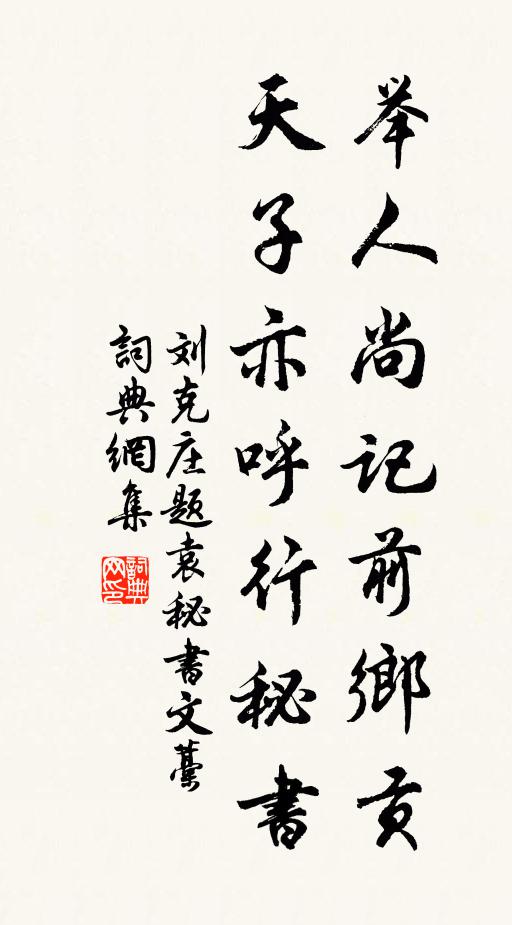 举人尚记前鄉贡
天子亦呼行秘書
刘克庄题袁秘書文藁
詞典網集
詞典网印